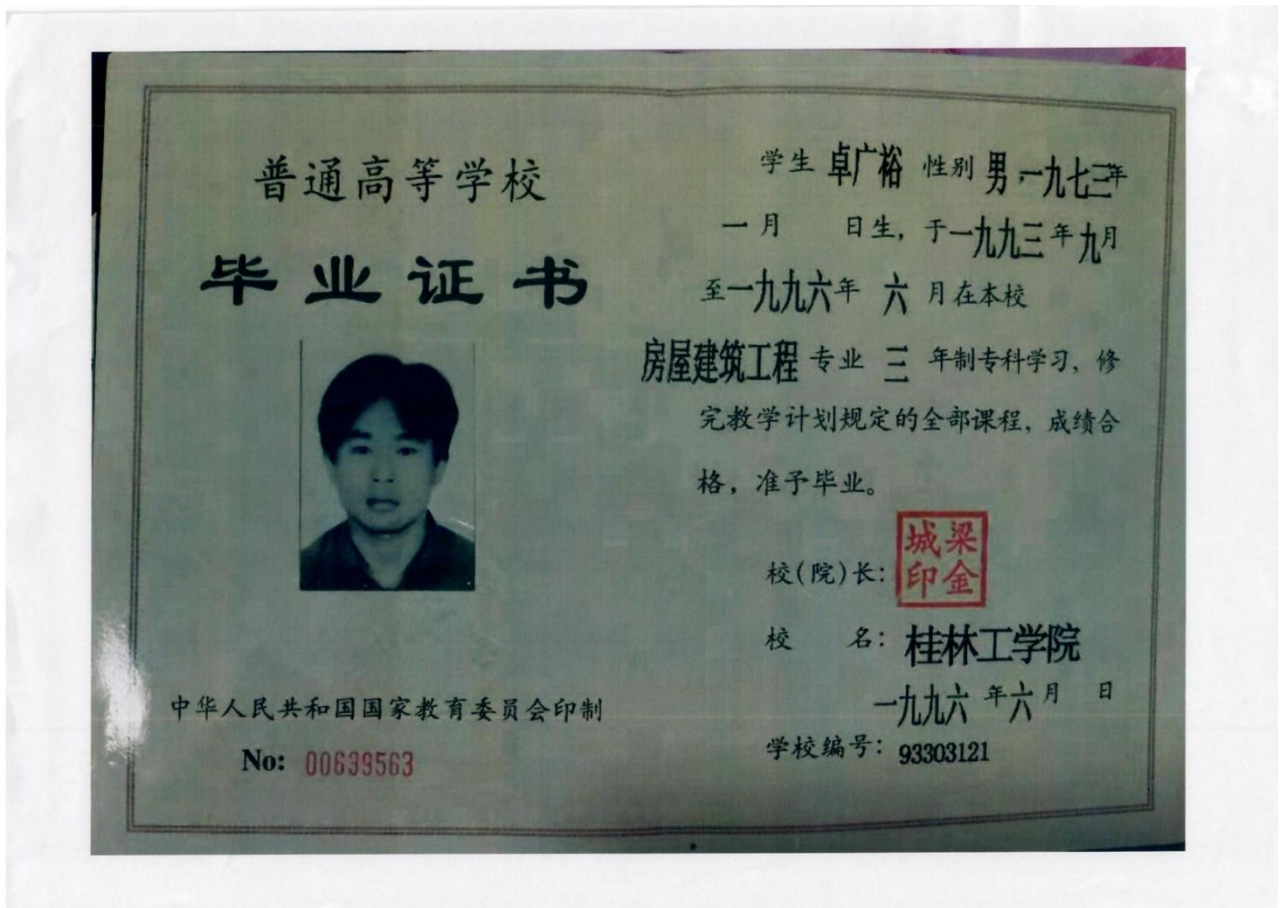 普通高等学校
毕业证书
中华人民共和国国家教育委员会印制
No: 00639563
学生 卓广裕 性别 男,一九七三年
一月 日生，于一九九三年九月
至一九九六年 六 月在本校
房屋建筑工程 专业 三 年制专科学习，修
完教学计划规定的全部课程，成绩合
格，准予毕业。
校(院)长: 梁金城印
校 名: 桂林工学院
一九九六 年六月 日
学校编号: 93303121